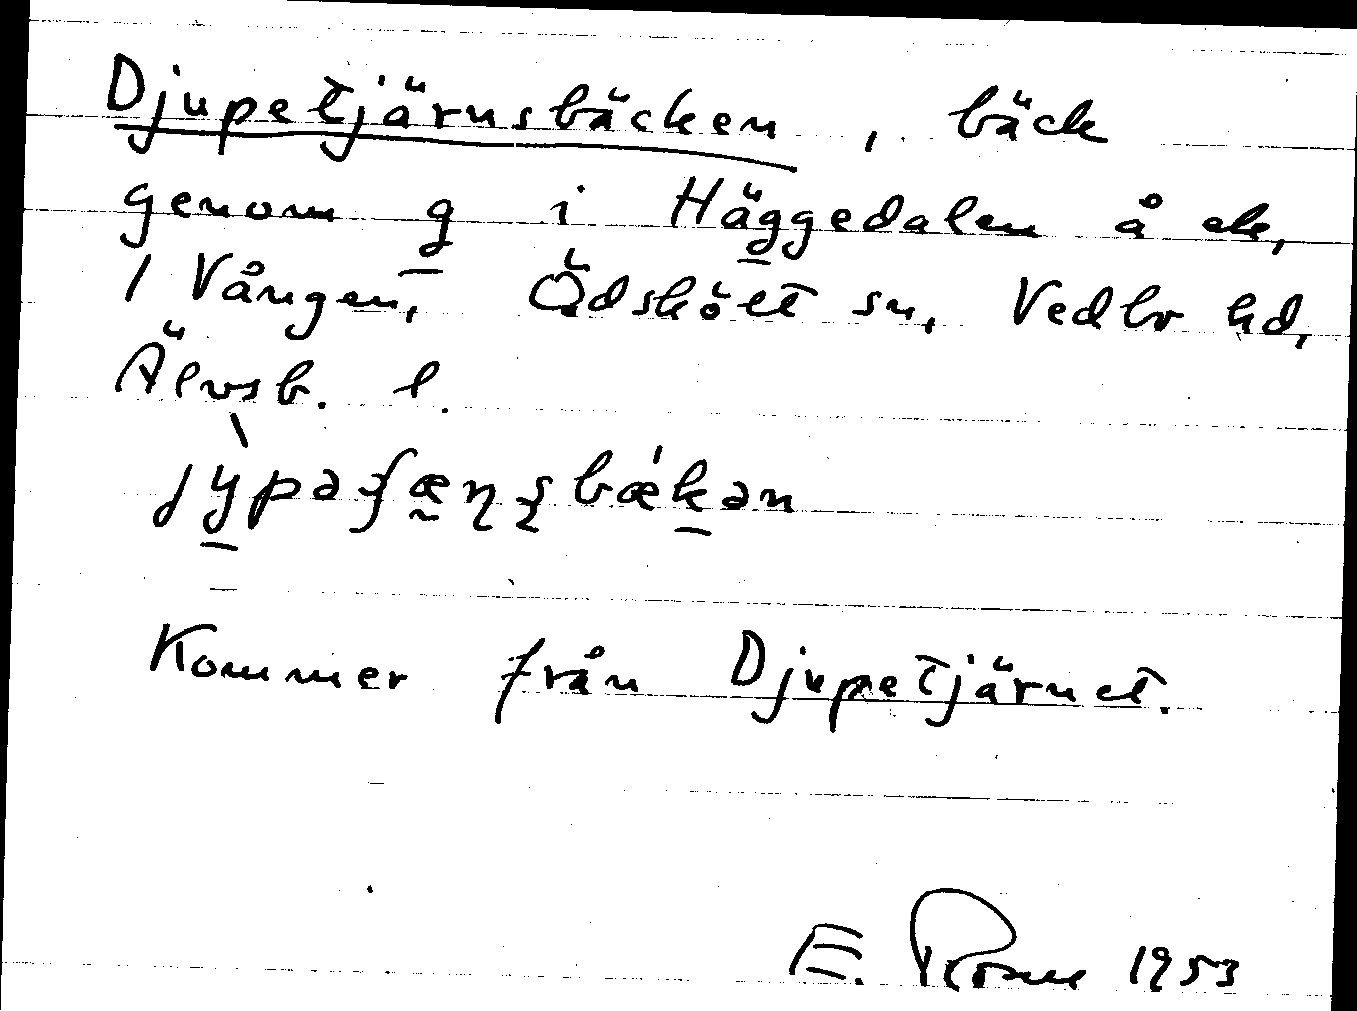 Djupetjärnsbäcken, bäck
genom g i Häggedalen å ek,
1 Vången, Ödskölt sn, Vedbo hd,
Älvsb. l.
Kommer från Djupetjärnet.
E. 1953